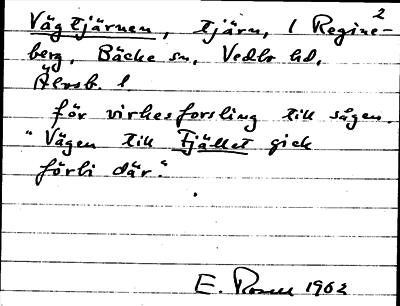 2
Vägtjärnen, tjärn, 1 Regine-
berg, Bäcke sn, Vedbo hd,
Älvsb. l
för virkesforsling till sågen.
"Vägen till Fjället gick
förbi där."
E. Rosell 1962